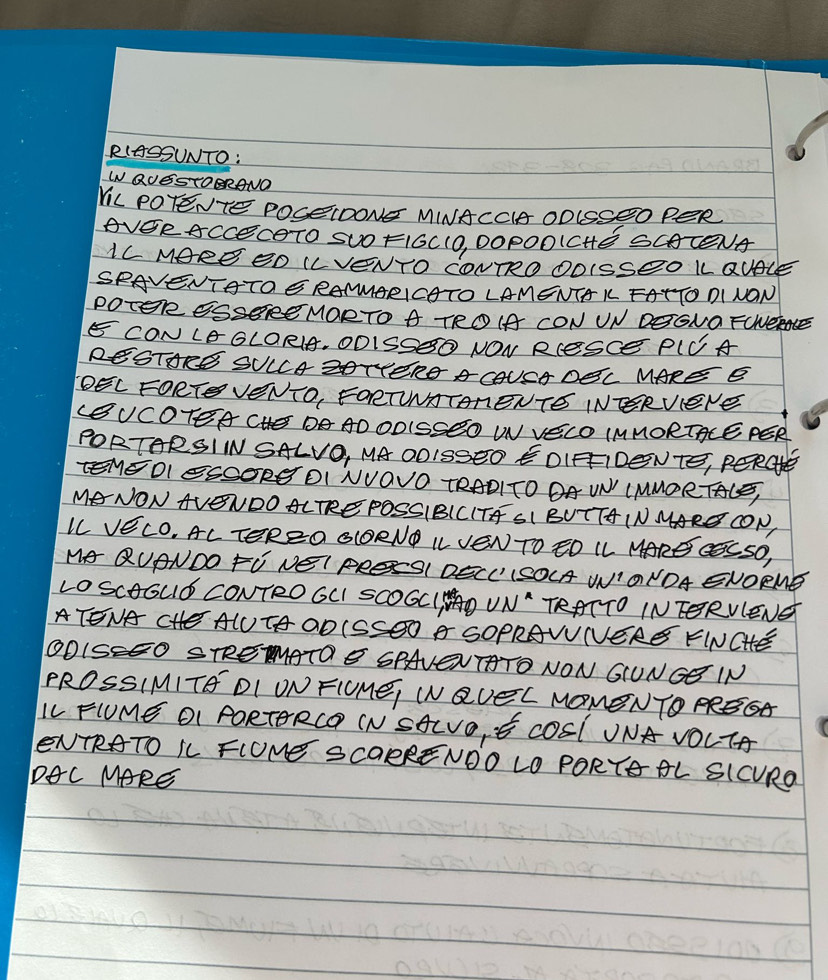 RIASSUNTO:
IN QUESTO BRANO
IL POTENTE POSEIDONE MINACCIA ODISSEO PER
AVER ACCECATO SUO FIGLIO, DOPODICHÉ SCATENA
IL MARE ED IL VENTO CONTRO ODISSEO IL QUALE
SPAVENTATO E RAMMARICATO LAMENTA IL FATTO DI NON
POTER ESSERE MORTO A TROIA CON UN DEGNO FUNERALE
E CON LA GLORIA. ODISSEO NON RIESCE PIÚ A
RESTARE SULLA ZATTERA A CAUSA DEL MARE E
DEL FORTE VENTO, FORTUNATAMENTE INTERVIENE
LEUCOTEA CHE DA AD ODISSEO UN VELO IMMORTALE PER
PORTARSI IN SALVO, MA ODISSEO É DIFFIDENTE, PERCHÉ
TEME DI ESSERE DI NUOVO TRADITO DA UN' IMMORTALE,
MA NON AVENDO ALTRE POSSIBILITÁ SI BUTTA IN MARE CON,
IL VELO. AL TERZO GIORNO IL VENTO ED IL MARE CESSO,
MA QUANDO FÚ NEI PRESSI DELL'ISOLA UN'ONDA ENORME
LO SCAGLIÓ CONTRO GLI SCOGLI, AD UN TRATTO INTERVIENE
ATENA CHE AIUTA ODISSEO A SOPRAVVIVERE FINCHÉ
ODISSEO STREMATO E SPAVENTATO NON GIUNGE IN
PROSSIMITÁ DI UN FIUME, IN QUEL MOMENTO PREGA
IL FIUME DI PORTARLO IN SALVO, É COSÍ UNA VOLTA
ENTRATO IL FIUME SCORRENDO LO PORTA AL SICURO
DAL MARE